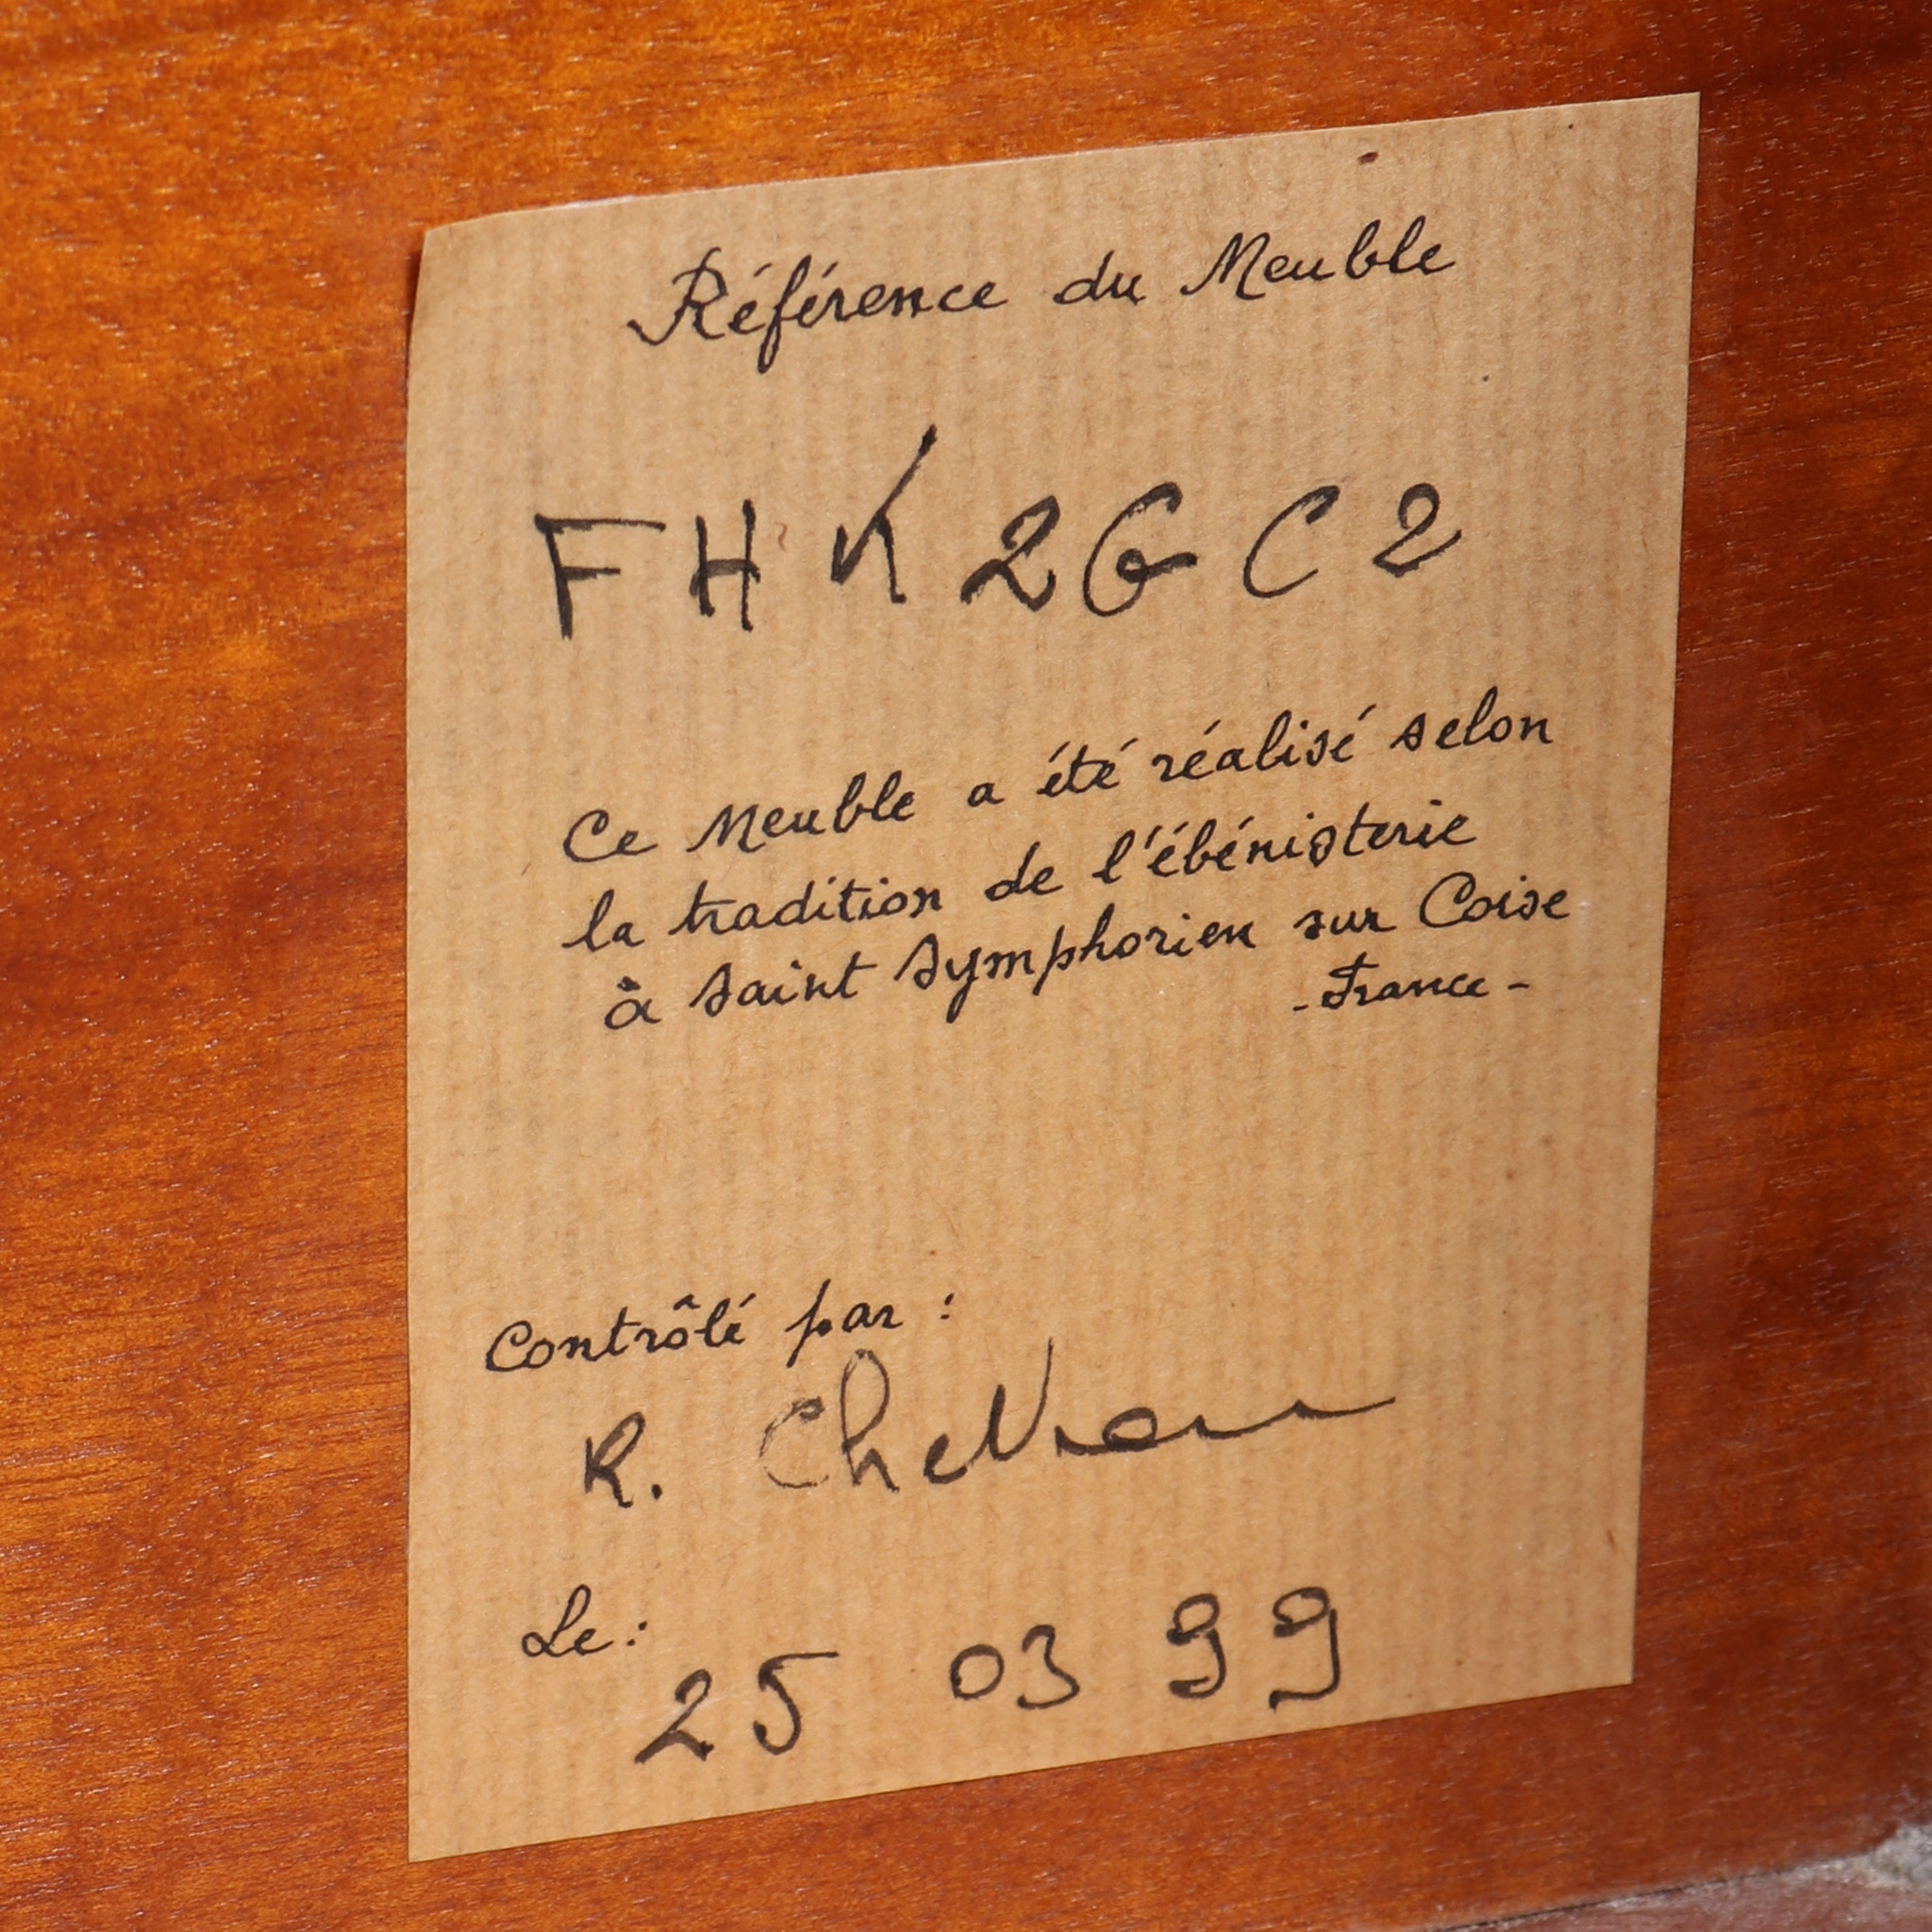 Référence du Meuble
FHK2GC2
Ce Meuble a été réalisé selon
la tradition de l'ébénisterie
à Saint Symphorien sur Coise
- France -
Contrôlé par :
R.
Le :
25 03 99